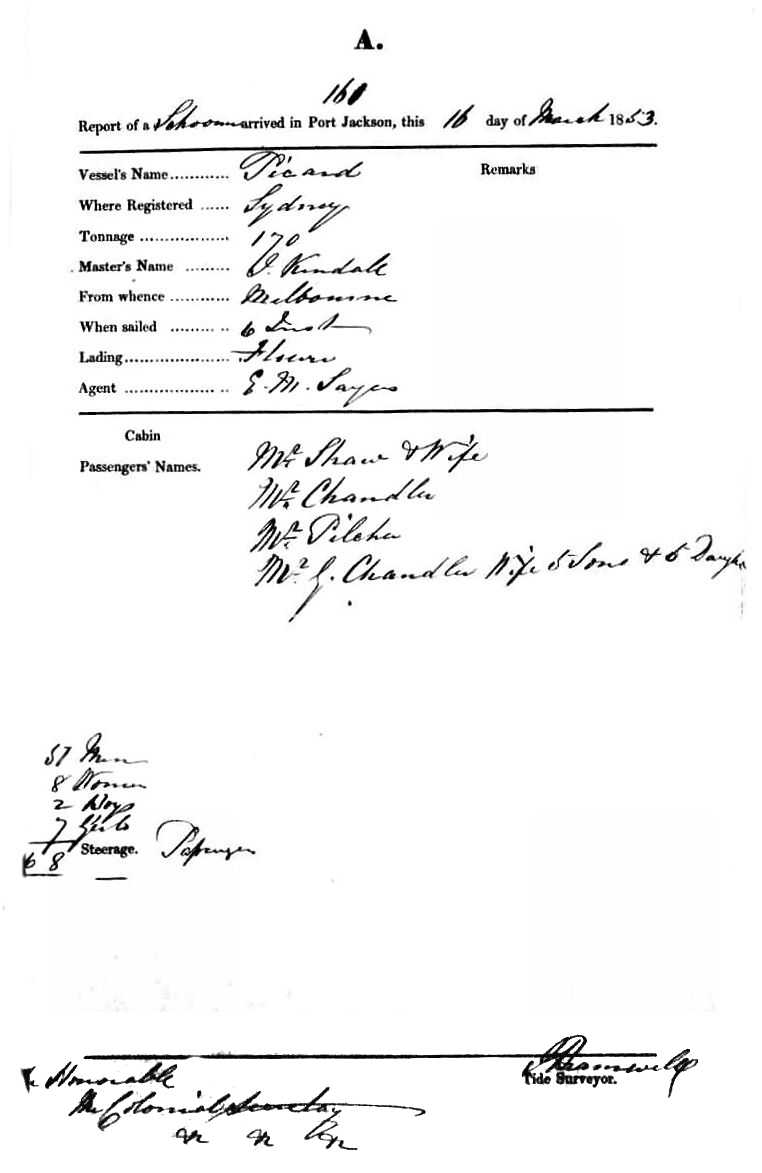 A.
160
Report of a Schooner arrived in Port Jackson, this 16 day of March 1853.
Vessel's Name............ Picard
Remarks
Where Registered ...... Sydney
Tonnage .................. 170
Master's Name ......... J. Kendall
From whence ............ Melbourne
When sailed ......... .. 6 Inst
Lading...................... Flour
Agent .................... .. E. M. Sayers
Cabin
Passengers' Names.
Mr Shaw & Wife
Mr Chandler
Mr Pilcher
Mr G. Chandler Wife 5 Sons & 5 Daugh
51 Men
8 Women
2 Boys
7 Girls
68 Steerage. Passengers
Honorable
The Colonial Secretary
&c &c &c
Bramwell
Tide Surveyor.